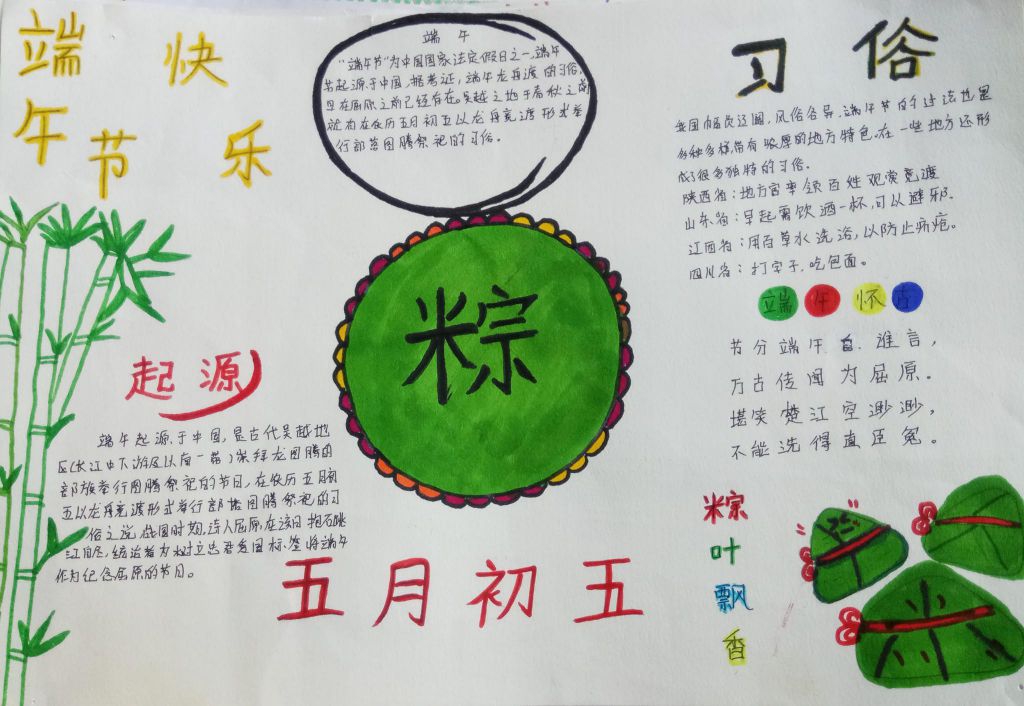 端午节快乐
端午
"端午节"为中国国家法定假日之一,端午
节起源于中国,据考证,端午龙舟渡的习俗,
早在屈原之前已经存在。吴越之地于春秋之前
就有在农历五月初五以龙舟竞渡形式举
行部落图腾祭祀的习俗。
习俗
我国幅员辽阔,风俗各异,端午节的过法也是
多种多样,带有浓厚的地方特色。在一些地方还形
成了很多独特的习俗.
陕西省:地方官率领百姓观赏竞渡
山东省:早起需饮酒一杯,可以避邪.
江西省:用百草水洗浴,以防止疥疮。
四川省:打李子,吃包面。
端午怀古
节分端午自谁言,
万古传闻为屈原。
堪笑楚江空渺渺,
不能洗得直臣冤。
粽
起源
端午起源于中国,是古代吴越地
区(长江中下游及以南一带)崇拜龙图腾的
部族举行图腾祭祀的节日,在农历五月初
五以龙舟竞渡形式举行部落图腾祭祀的习
俗之说.战国时期,诗人屈原,在该日抱石跳
江自尽,统治者为树立忠君爱国标签将端午
作为纪念屈原的节日。
五月初五
粽叶飘香